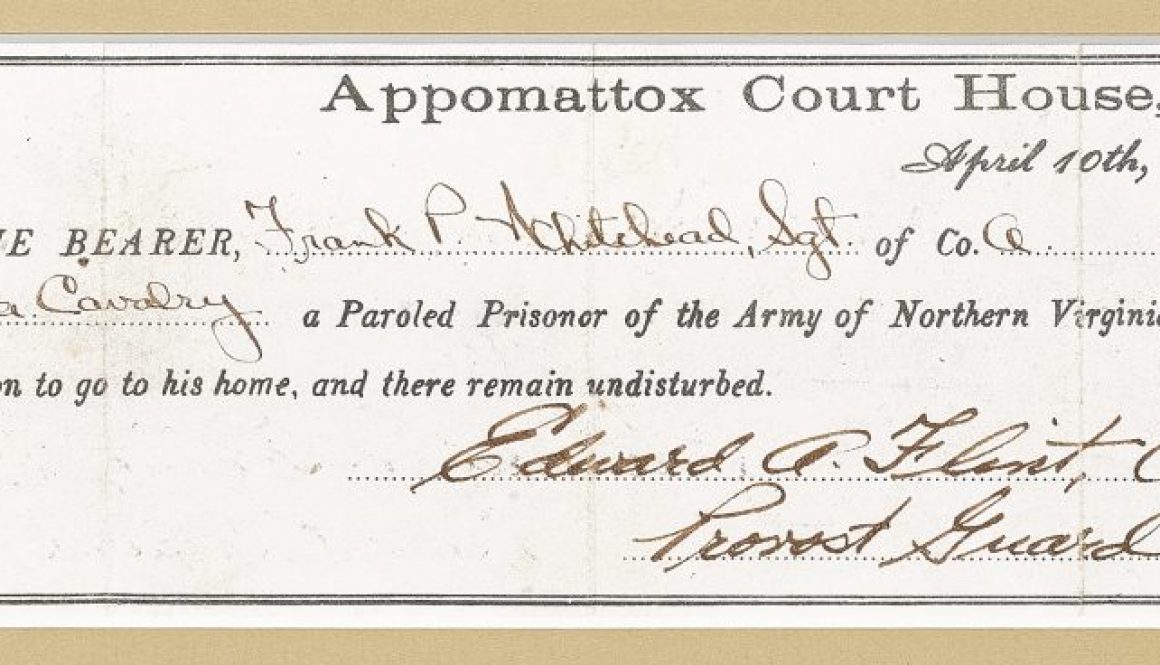 Appomattox Court House,
April 10th,
E BEARER, Frank P. Whitehead, Sgt. of Co. A
a. Cavalry a Paroled Prisoner of the Army of Northern Virginia
on to go to his home, and there remain undisturbed.
Edward A. Flint, C
Provost Guard